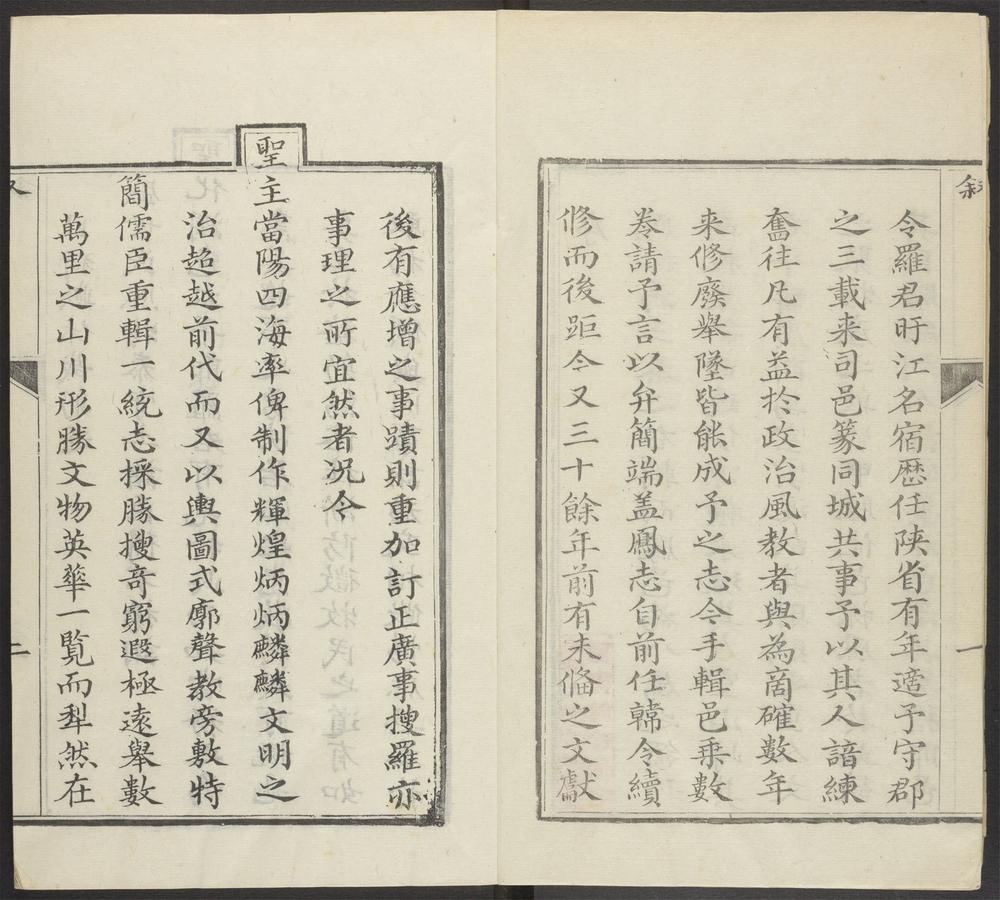 叙
一
令羅君盱江名宿歷任陕省有年適予守郡
之三載来司邑篆同城共事予以其人諳練
奮往凡有益扵政治風教者與為商確數年
来修廢舉墜皆能成予之志今手輯邑乗數
卷請予言以弁簡端盖鳳志自前任韓令續
修而後距今又三十餘年前有未俻之文獻
後有應增之事蹟則重加訂正廣事搜羅亦
事理之所宜然者况今
聖主當陽四海率俾制作輝煌炳炳麟麟文明之
治超越前代而又以輿圖式廓聲教旁敷特
簡儒臣重輯一統志採勝搜奇窮遐極遠舉數
萬里之山川形勝文物英華一覽而犁然在
二